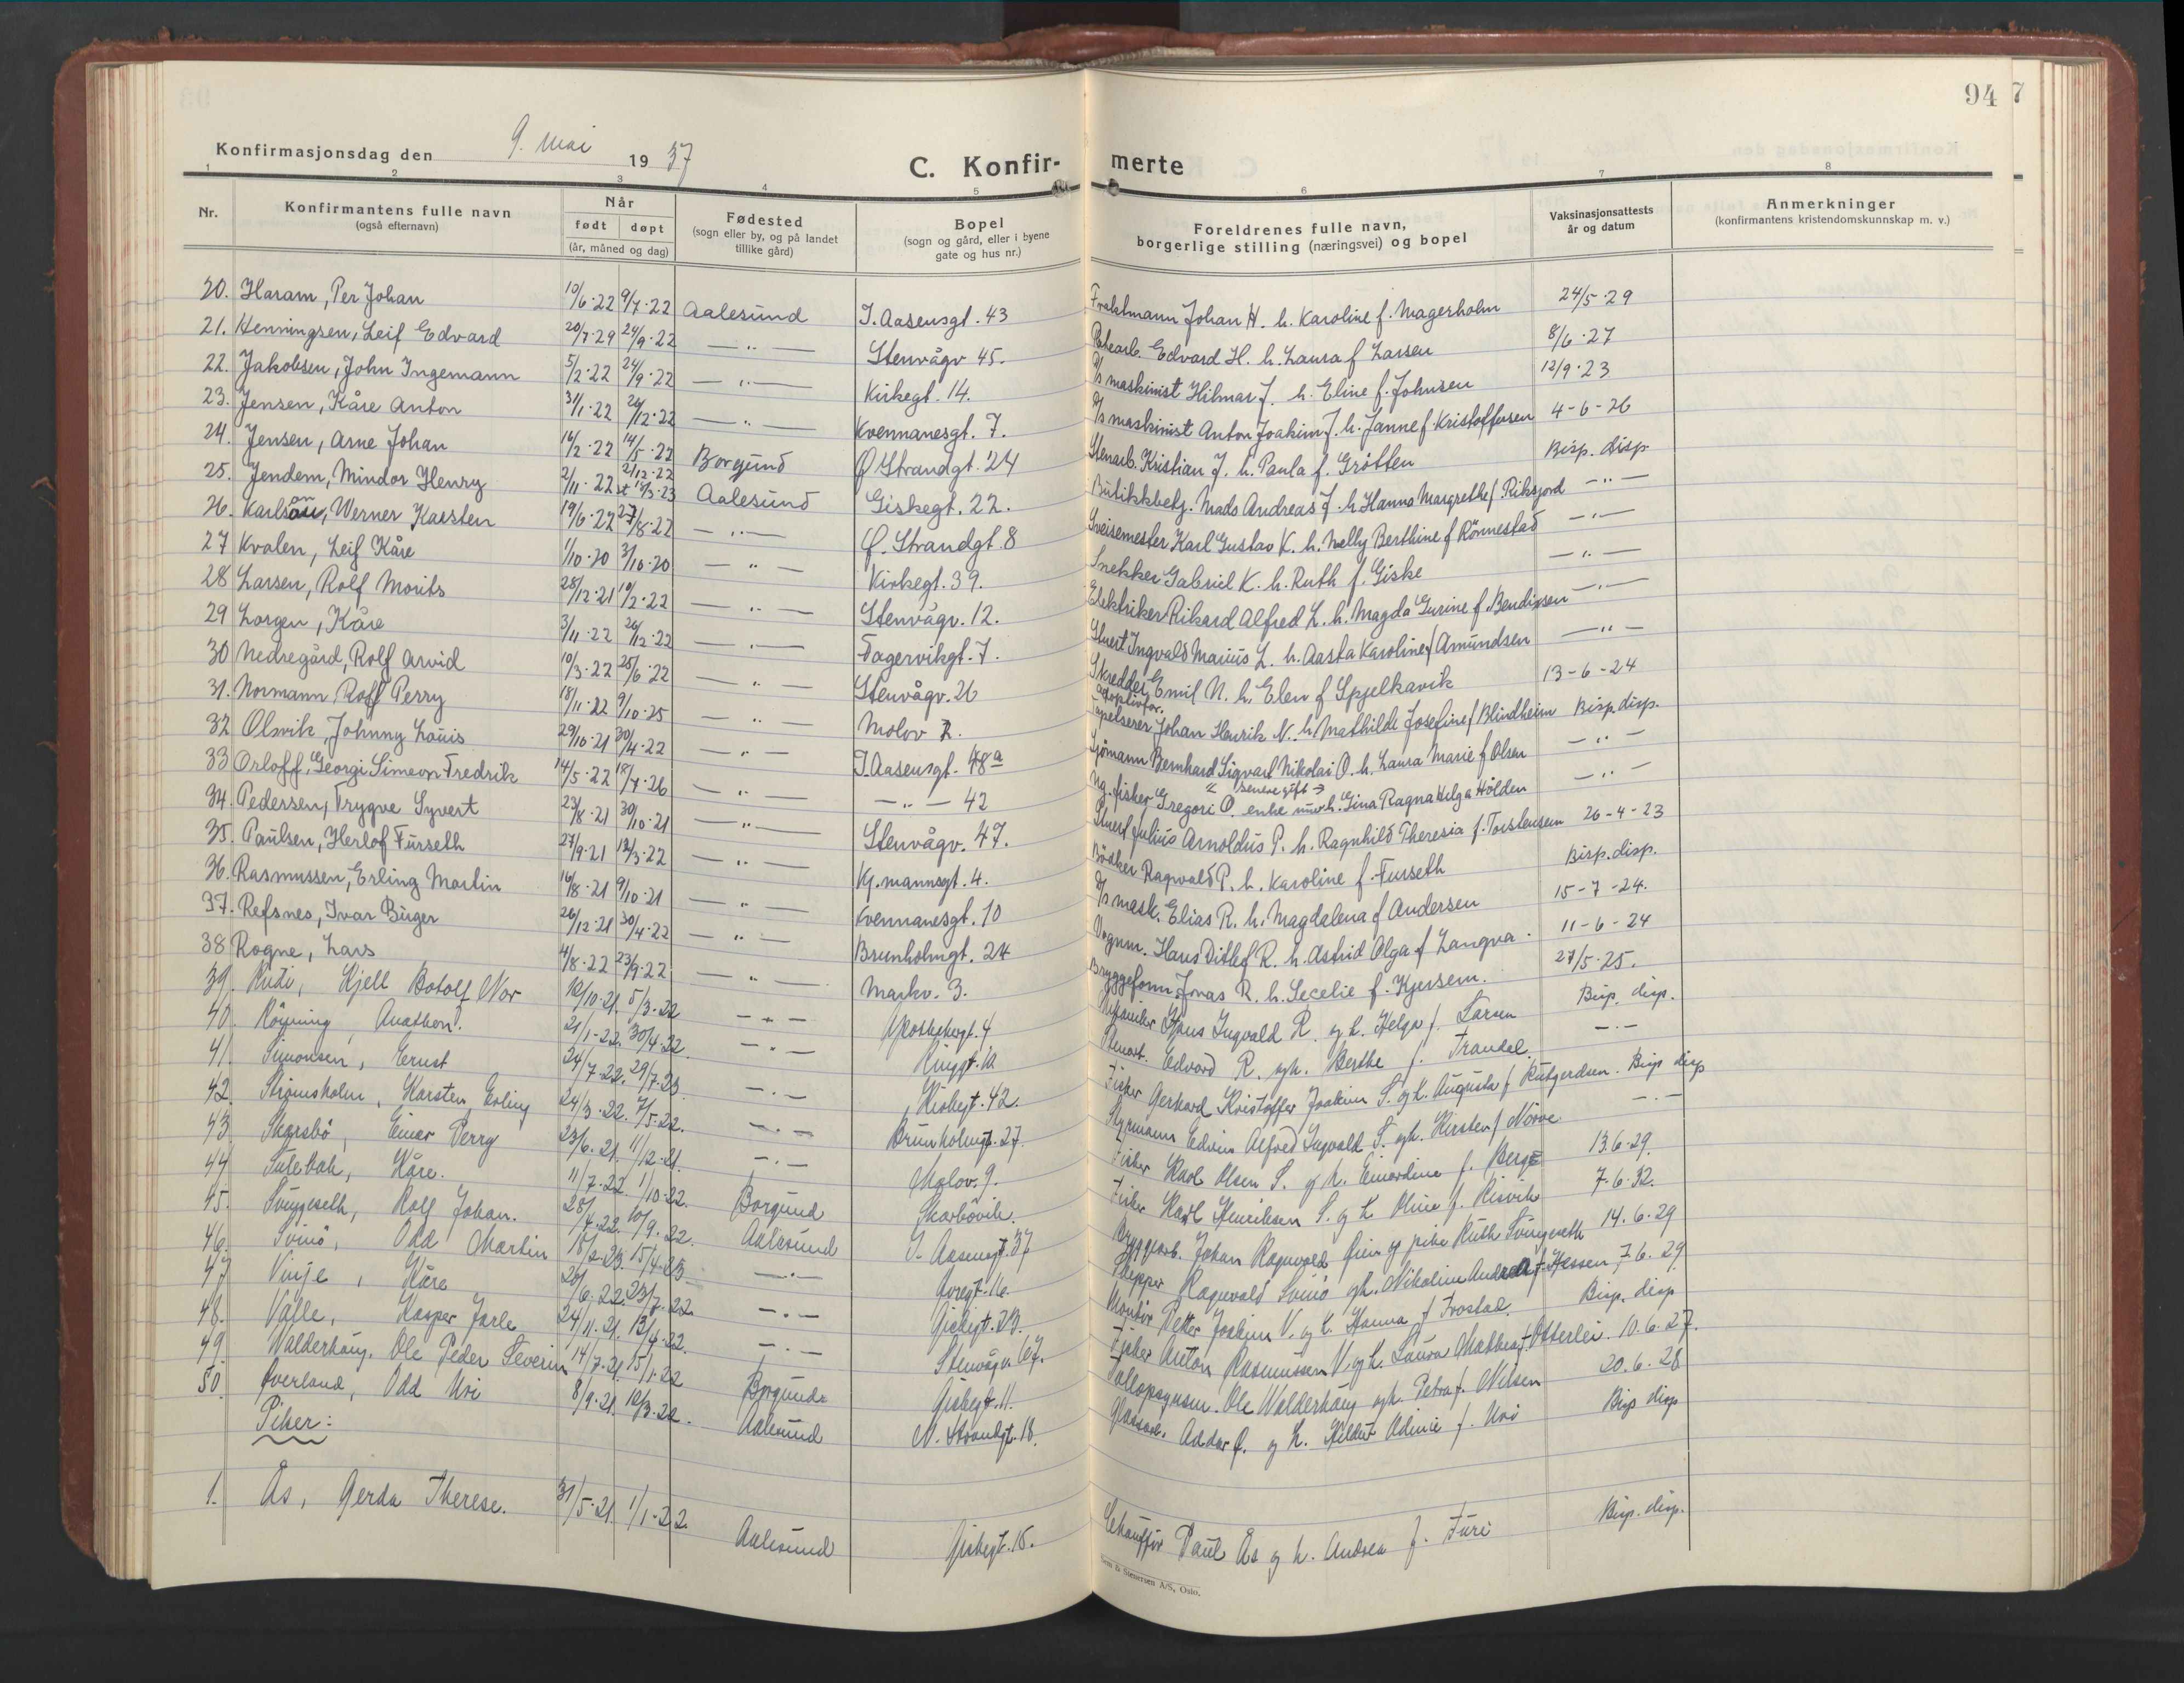 94 7
Konfirmasjonsdag den 9. mai 1937 C. Konfir- merte
1 2 3 4 5 6 7 8
Nr. Konfirmantens fulle navn (også efternavn) Når født døpt (år, måned og dag) Fødested (sogn eller by, og på landet tillike gård) Bopel (sogn og gård, eller i byene gate og hus nr.) Foreldrenes fulle navn, borgerlige stilling (næringsvei) og bopel Vaksinasjonsattests år og datum Anmerkninger (konfirmantens kristendomskunnskap m. v.)
20. Haram, Per Johan 10/6·22 9/7·22 Aalesund I. Aasensgt. 43 Johan H. h. Karoline f. Magerholm 24/5·29
21. Henningsen, Leif Edvard 20/7·29 24/9·22 —„— Stenvågv 45. Edvard H. h. Laura f Larsen 8/6·27
22. Jakobsen, John Ingemann 5/2·22 24/9·22 —„— Kirkegt. 14. maskinist Hilmar J. h. Eline f. Johnsen 12/9·23
23. Jensen, Kåre Anton 31/1·22 26/12·22 —„— Kvennanesgt. 7. maskinist Anton Joakim J. h. Janne f. Kristoffersen 4-6-26
24. Jensen, Arne Johan 16/2·22 14/5·22 Borgund Ø Strandgt. 24 Stenarb. Kristian J. h. Paula f. Grötten Bisp. disp
25. Jendem, Mindor Henry 2/11·22 2/12·22 st 18/3·23 Aalesund Giskegt. 22. Butikkbetj. Mads Andreas J. h Hanna Margrethe f Riksjord —„—
26. Karlsau, Werner Karsten 19/6·22 27/8·22 —„— Ø. Strandgt 8 Sveisemester Karl Gustav K. h. Nelly Berthine f Rönnestad —„—
27 Kvalen, Leif Kåre 1/10·20 3/10·20 —„— Kirkegt. 39. Snekker Gabriel K. h. Ruth f. Giske —„—
28 Larsen, Rolf Morits 28/12·21 19/2·22 —„— Stenvågv. 12. Elektriker Rikard Alfred L. h. Magda Gurine f. Bendixsen —„—
29 Lorgen, Kåre 3/11·22 26/12·22 —„— Fagervikgt. 7. Stuert Ingvald Marius L. h. Aasta Karoline f Amundsen —„—
30 Nedregård, Rolf Arvid 10/3·22 25/6·22 —„— Stenvågv. 26 Skredder Emil N. h. Elen f Spjelkavik 13-6-24
31. Normann Rolf Perry 18/11·22 9/10·25 —„— Molov 2. adoptivfor. Tapetserer Johan Henrik N. h. Mathilde Josefine f Blindheim Bisp. disp.
32 Olsvik, Johnny Louis 29/10·21 30/4·22 —„— I. Aasensgt. 48a Sjömann Bernhard Sigvart Nikolai O. h. Laura Marie f Olsen —„—
33 Orloff, Georgi Simeon Fredrik 14/5·22 18/7·26 —„— —„— 42 fisker Gregori O. enke h. Gina Ragna Helga Hölden —„—
senere gift →
34. Pedersen, Trygve Syvert 23/8·21 30/10·21 —„— Stenvågv. 47. Stuert Julius Arnoldus P. h. Ragnhild Theresia f. Torstensen 26-4-23
35. Paulsen, Herlof Furseth 27/9·21 12/3·22 —„— Kj.mannsgt. 4. Bödker Ragnvald P. h. Karoline f. Furseth Bisp. disp.
36. Rasmussen, Erling Martin 16/8·21 9/10·21 —„— Kvennanesgt. 10 mask. Elias R. h. Magdalena f Andersen 15-7-24.
37. Refsnes, Ivar Büger 26/12·21 30/4·22 —„— Brunholmgt. 24 Vognm. Hans Ditlef R. h. Astrid Olga f Langva. 11-6-24
38 Rogne, Lars 4/8·22 23/9·22 —„— Markv. 3. Bryggeform. Jonas R. h. Cecelie f. Kjersem. 27/5·25.
39. Rudi, Kjell Botolf Nor 10/10·21. 5/3·22 —„— Apothekergt. 4 Ingvald R. og h. Helga f. Larsen Bisp. disp.
40. Röyning, 21/1·22. 30/4·22. —„— Ringgt. Edvard R. og h. Berthe f. Trandal —„—
41. Simonsen, Ernst 24/7·22. 29/7·23. —„— Kirkegt. 42. Fisker Gerhard Kristoffer Joakim S. og h. Augusta f Bisp disp
42. Strömsholm, Karsten Erling 24/3·22. 7/5·22. —„— Brunholmgt. 27. Styrmann Edvin Alfred Ingvald S. og h. Kirsten f Nörve —„—
43. Skarsbö, Einar Perry 23/6·21. 11/12·21. —„— Molov. 9. Fisker Karl Olsen S. og h. Einardine f. Berge 13.6.29.
44. Sulebak, Kåre. 11/7·22. 1/10·22. Borgund Skarbövik. Fisker Karl Henriksen S. og h Oline f. Risvik 7.6.32.
45. Svingeseth, Rolf Johan. 28/4·22. 10/9·22. Aalesund I. Aasensgt. 37 Bryggearb. Johan Ragnvald og pike Ruth Svingeseth 14.6.29
46. Svinö, Odd Martin 18/2·23. 15/4·23. —„— Skipper Ragnvald Svinö og h. Nikoline Andrea f. Hessen, 7.6.29.
47 Vinje, Kåre 26/6·22. 23/7·22 —„— Giskegt. 23. Montör Petter Joakim V. og h. Hanna f Frostad. Bisp. disp
48. Valle, Kasper Jarle 24/11·21. 13/4·22. —„— Stenvågv. 67. Fisker Anton Rasmussen V. og h. Laura Mathea f. Otterlei. 10.6.27.
49 Walderhaug, Ole Peder Severin 14/7·21. 15/1·22 Borgund Giskegt. 11. Ole Walderhaug og h. Petra f. Nilsen 20.6.28
50. Överland, Odd Uri 8/9·21. 12/3·22. Aalesund N. Strandgt. 18. Addar Ö. og h. Adinie f. Uri Bisp disp
Piker:
1. Ås, Gerda Therese. 31/5·21 1/1·22. Aalesund Giskegt. 15. Chaufför Paul Ås og h. Andrea f. Furi Bisp. disp.
Sem & Stenersen A/S, Oslo.